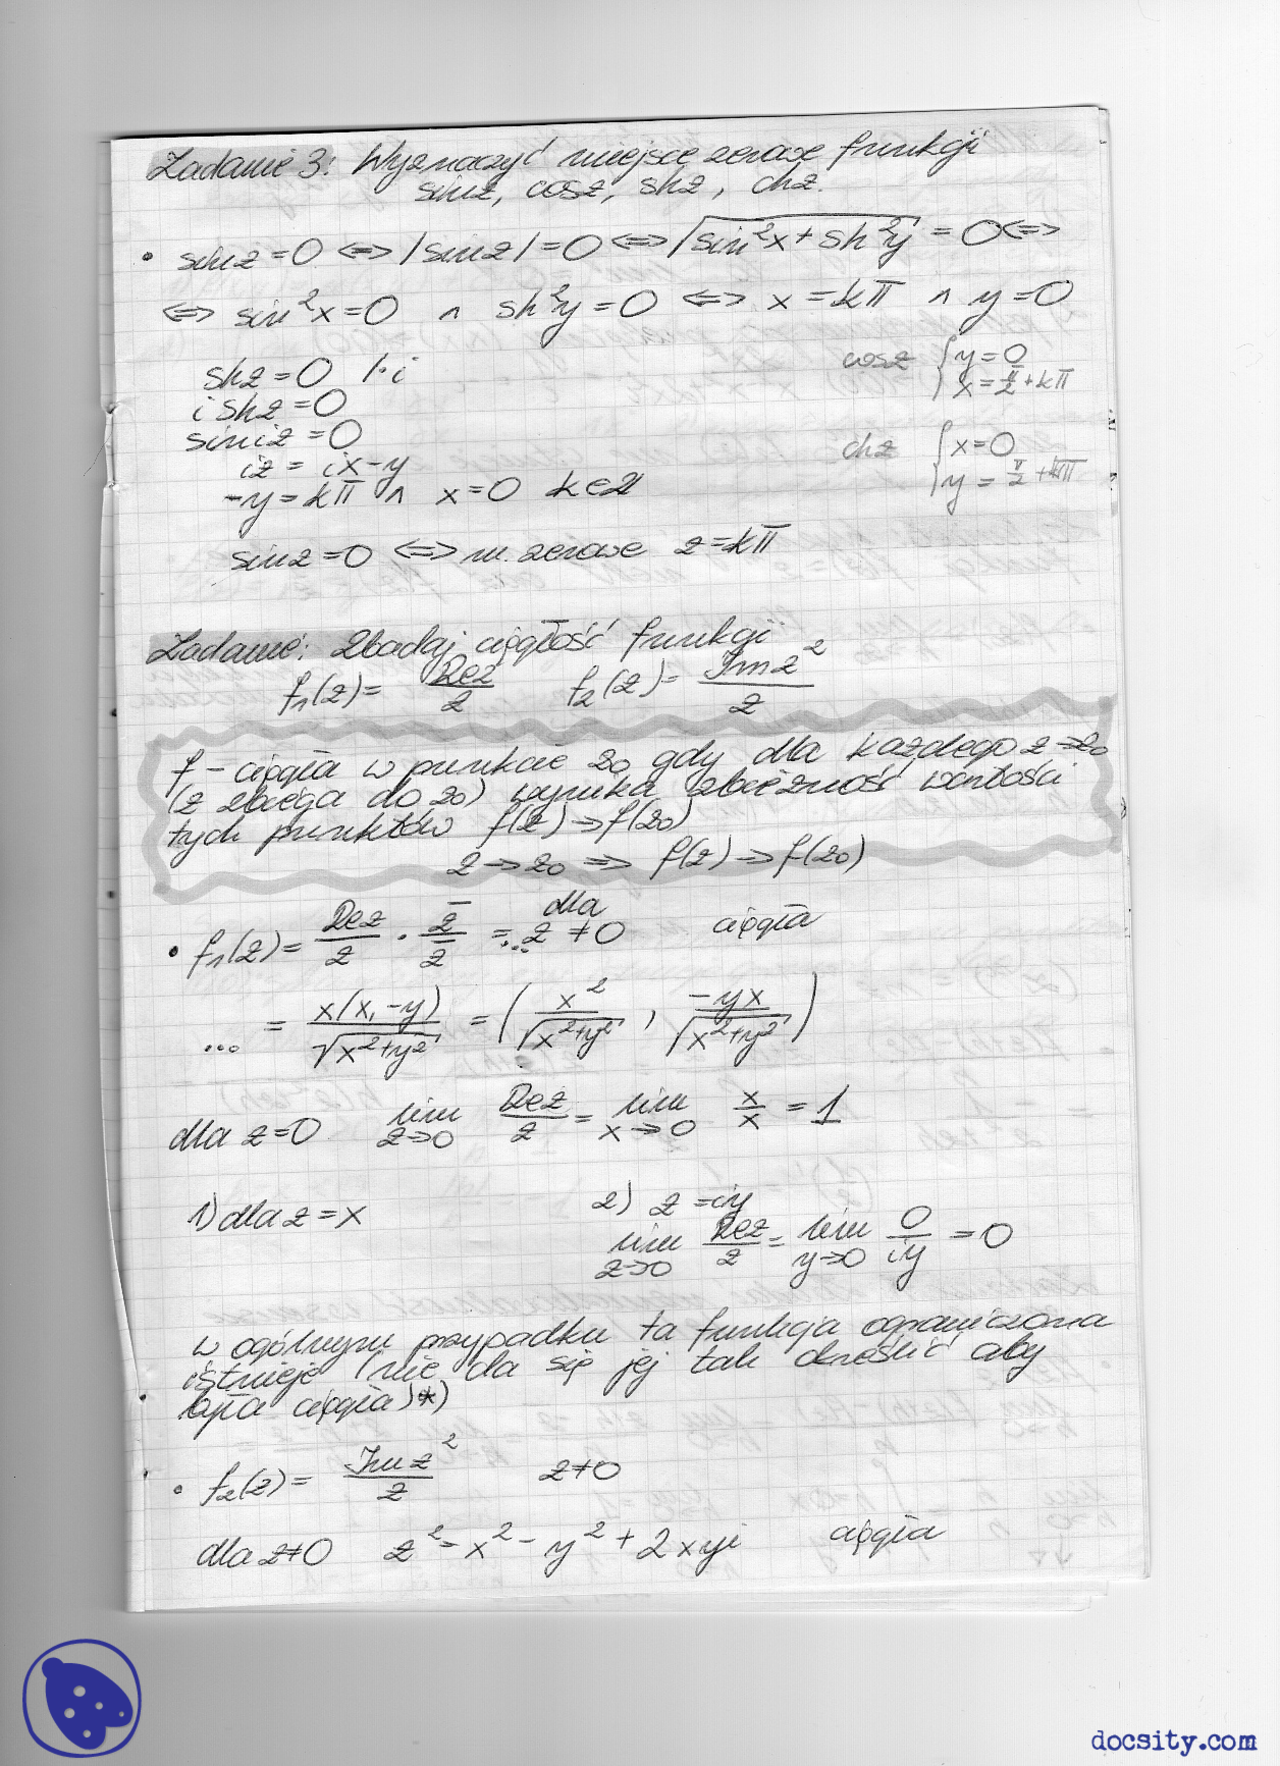 Zadanie 3: Wyznaczyć miejsce zerowe funkcji
sinz, cosz, shz, chz.
• sinz=0 <=> |sinz|=0 <=> √(sin²x+sh²y) = 0 <=>
<=> sin²x=0 ∧ sh²y=0 <=> x=kπ ∧ y=0
shz=0 /·i
i shz=0
siniz=0
iz = ix-y
-y=kπ ∧ x=0 k∈Z
cosz { y=0
x=π/2+kπ
chz { x=0
y=π/2+kπ
sinz=0 <=> m. zerowe z=kπ
Zadanie: Zbadaj ciągłość funkcji
f₁(z)= Rez/z f₂(z)= Imz²/z
f - ciągła w punkcie z₀ gdy dla każdego z→z₀
(z zbiega do z₀) wynika zbieżność wartości
tych punktów f(z)→f(z₀)
z→z₀ => f(z)→f(z₀)
• f₁(z)= Rez/z · z̄/z̄ =... dla z≠0 ciągła
... = x(x,-y)/√(x²+y²) = (x²/√(x²+y²), -yx/√(x²+y²))
dla z=0 lim z→0 Rez/z = lim x→0 x/x = 1
1) dla z=x
2) z=iy
lim z→0 Rez/z = lim y→0 0/iy = 0
w ogólnym przypadku ta funkcja ograniczona
istnieje (nie da się jej tak określić aby
była ciągła)*)
• f₂(z)= Imz²/z z≠0
dla z≠0 z²=x²-y²+2xyi ciągła
docsity.com